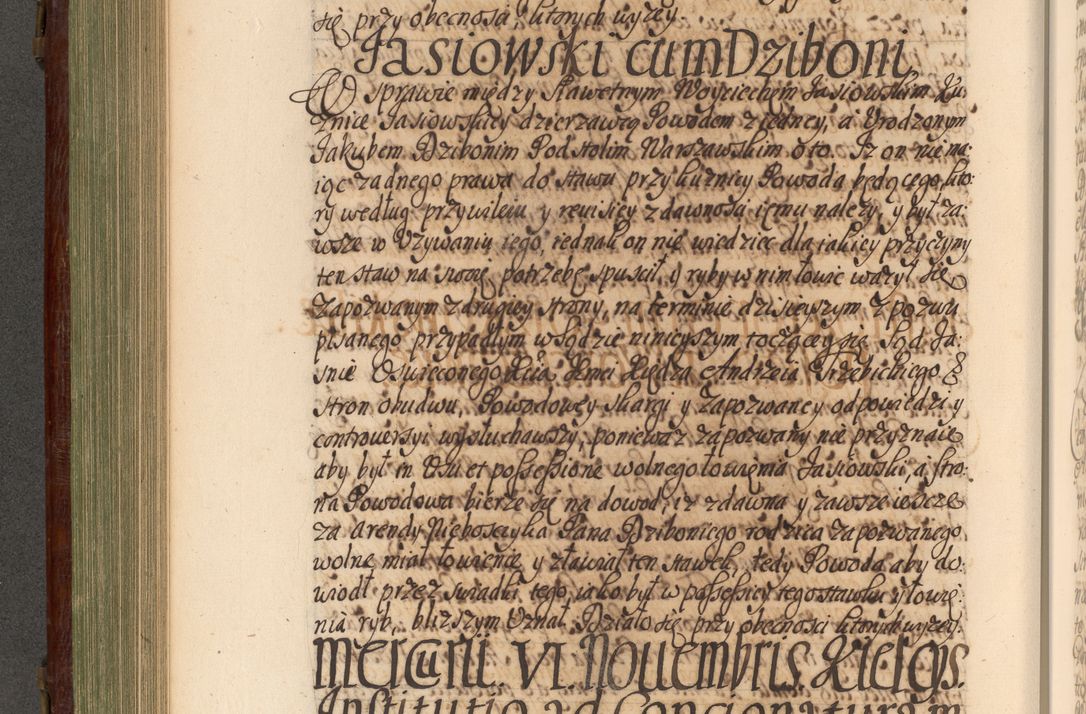 się przy obecnosci, ktorych wyzey.
Jasiowski cum Dziboni
W sprawie między Sławetnym Woyciechem Jasiowskim Ku:
znice Jasiowskiey dzierzawcą Powodem z iedney, a Urodzonym
Jakubem Dzibonim Podstolim Warszawskim o to. Iz on nie ma:
iąc zadnego prawa do stawu przy kuznicy Powoda będącego, kto:
ry według przywileiu y rewisiey z dawnosci iemu nalezy, y był za:
wsze w Uzywaniu iego, iednak on nie wiedziec dla iakiey przyczyny
ten staw na swoię potrzebę spuscił, y ryby w nim łowic wazył się,
Zapozwanym z drugiey strony, na terminie dzisieyszym z pozwu
pisanego przypadłym w sądzie ninieyszym toczącey się. Sąd Ja:
snie Oswieconego Xcia Jmci Xiędza Andrzeia Trzebickiego &
stron obudwu, Powodowey skargi y Zapozwaney odpowiedzi y
controuersyi wysłuchawszy, poniewaz zapozwany nie przyznaie
aby był in Usu et possessione wolnego łowienia Jasiowski, a stro:
na Powodowa bierze się na dowod, iz z dawna y zawsze ieszcze
za arendy Nieboszczyka Pana Dziboniego rodzica zapozwanego
wolne miał łowienie y zławiał ten stawek, tedy Powoda aby do:
wiodł przez swiadki tego, iako był w possessiey tego stawku y łowie:
nia ryb, blizszym Uznał. Działo się przy obecnosci ktorych wyzey.
Mercurii. VI. Nouembris Kielcys.
Institutio ad Concionaturam